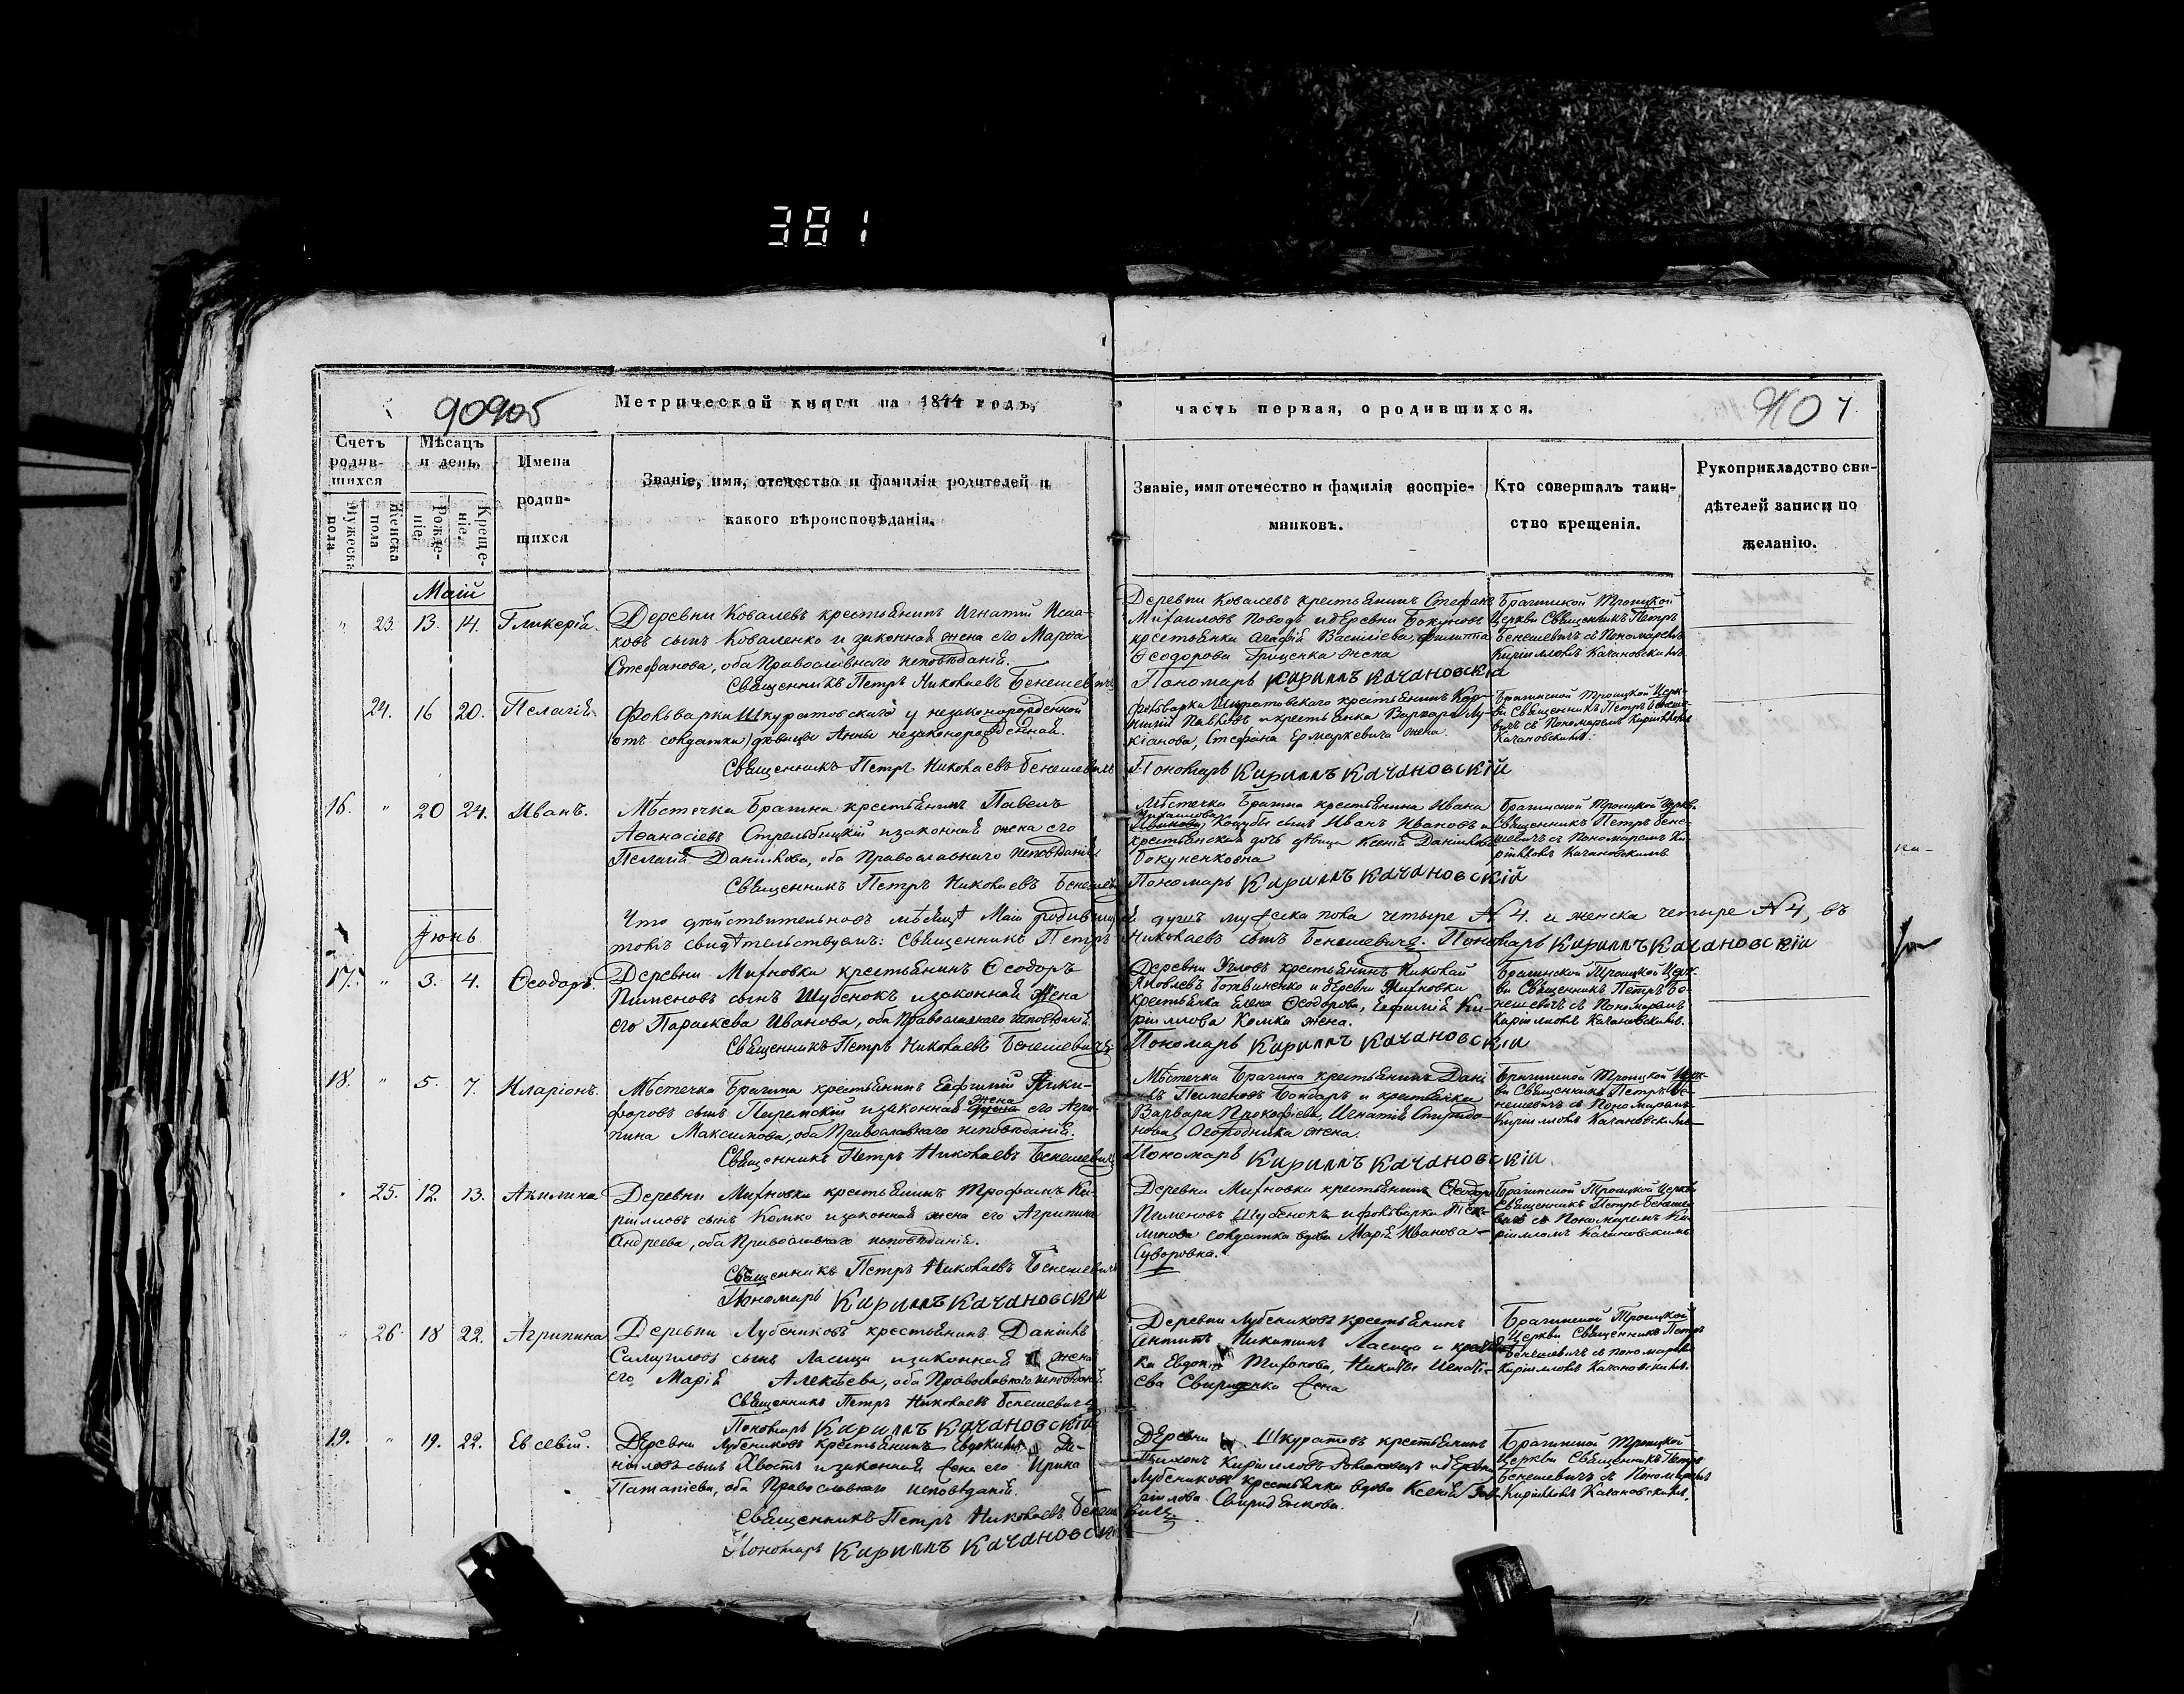 381
90905
Метрической книги на 1844 годъ,
часть первая, о родившихся.
910
7
Счетъ родив-шихся
Мѣсяцъ и день
Имена родив-шихся
Званіе, имя, отечество и фамилія родителей и какого вѣроисповѣданія.
Званіе, имя отечество и фамилія воспріе-мниковъ.
Кто совершалъ таин-ство крещенія.
Рукоприкладство сви-дѣтелей записи по желанію.
Мужеска пола
Женска пола
Рожде-ніе.
Креще-ніе.
Маій
23. 13. 14. Гликерія.
Деревни Ковалевъ крестьянинъ Игнатій Исаа-
ковъ сынъ Коваленко и законная жена его Марѳа
Стефанова, оба Православнаго исповѣданія.
Священникъ Петръ Николаевъ Бенешевичъ
Деревни Ковалевъ крестьянинъ Стефанъ
Михаиловъ и деревни Бокуновъ
крестьянка Агафія Василіева, Филиппа
Ѳеодорова Гриценка жена
Пономарь Кириллъ Качановскій
Брагинской Троицкой
Церкви Священникъ Петръ
Бенешевичъ съ Пономаремъ
Кирилломъ Качановскимъ
24. 16 20. Пелагія
Фольварка Шкуратовскаго у незаконорожденной
(отъ солдатки) дѣвицы Анны незаконорожденная.
Священникъ Петръ Николаевъ Бенешевичъ
Фольварка Шкуратовскаго крестьянинъ Кор-
нилій Павловъ и крестьянка Варвара Лу-
кіанова, Стефана Ермаркевича жена.
Пономарь Кириллъ Качановскій
Брагинской Троицкой Церк-
ви Священникъ Петръ Бенеше-
вичъ съ Пономаремъ Кирилломъ
Качановскимъ.
16. " 20 24. Иванъ.
Мѣстечка Брагина крестьянинъ Павелъ
Аѳанасіевъ Стрельбицкій и законная жена его
Пелагія Данилова, оба Православнаго исповѣданія
Священникъ Петръ Николаевъ Бенешевичъ
Мѣстечка Брагина крестьянина Ивана
Михаилова
Коцубы сынъ Иванъ Ивановъ и
крестьянская дочь дѣвица Ксенія Данилова
Бокуненковна
Пономарь Кириллъ Качановскій
Брагинской Троицкой Церкви
Священникъ Петръ Бене-
шевичъ съ Пономаремъ Ки-
рилломъ Качановскимъ.
Что дѣйствительно въ мѣсяцѣ Маіи родившихся душъ мужеска пола четыре N 4. и женска четыре N 4, въ
томъ свидѣтельствуемъ: Священникъ Петръ Николаевъ сынъ Бенешевичъ. Пономарь Кириллъ Качановскій
Іюнь
17. " 3. 4. Ѳеодоръ.
Деревни Михновки крестьянинъ Ѳеодоръ
Пименовъ сынъ Шубенокъ и законная жена
его Параскева Иванова, оба Православнаго исповѣданія.
Священникъ Петръ Николаевъ Бенешевичъ
Деревни Угловъ крестьянинъ Николай
ЯковлевъБотвиненко и деревни Михновки
крестьянка Елена Ѳеодорова, Евфимія Ки-
риллова Комка жена.
Пономарь Кириллъ Качановскій
Брагинской Троицкой Церк-
ви Священникъ Петръ Бе-
нешевичъ съ Пономаремъ
Кирилломъ Качановскимъ.
18. " 5. 7. Иларіонъ.
Мѣстечка Брагина крестьянинъ Евфимій Ники-
форовъ сынъ и законная жена его Агри-
пина Максимова, оба Православнаго исповѣданія.
Священникъ Петръ Николаевъ Бенешевичъ
Мѣстечка Брагина крестьянинъ Дані
илъ Пименовъ Бондарь и крестьянка
Варвара Прокофіева, Игнатія Спиридо-
нова Огородника жена.
Пономарь Кириллъ Качановскій
Брагинской Троицкой Церк-
ви Священникъ Петръ Бе-
нешевичъ съ Пономаремъ
Кирилломъ Качановскимъ
25. 12. 13. Акилина
Деревни Михновки крестьянинъ Трофимъ Ки-
рилловъ сынъ Комко и законная жена его Агрипина
Андреева, оба Православнаго исповѣданія.
Священникъ Петръ Николаевъ Бенешевичъ
Пономарь Кириллъ Качановскій
Деревни Михновки крестьянинъ Ѳеодоръ
Пименовъ Шубенокъ и фольварка
солдатка вдова Марія Иванова
Суворовка.
Брагинской Троицкой Церкви
Священникъ Петръ Бенеше-
вичъ съ Пономаремъ Ки-
рилломъ Качановскимъ
26. 18 22. Агрипина
Деревни Лубениковъ крестьянинъ Даніилъ
Самуиловъ сынъ Ласица и законная жена
его Марія Алексѣева, оба Православнаго исповѣданія.
Священникъ Петръ Николаевъ Бенешевичъ
Пономарь Кириллъ Качановскій
Деревни Лубениковъ крестьянинъ
Антипъ Никитинъ Ласица и крестьян
ка Евдокія Тихонова, Никиты Игнать-
ева Свириденка жена
Брагинской Троицкой
Церкви Священникъ Петръ
Бенешевичъ съ пономаремъ
Кирилломъ Качановскимъ.
19. " 19. 22. Евсевій.
Деревни Лубениковъ крестьянинъ Евдокимъ Да-
ниловъ сынъ Хвостъ и законная жена его Ирина
Патапіева, оба Православнаго исповѣданія.
Священникъ Петръ Николаевъ Бенешевичъ
Пономарь Кириллъ Качановскій
Деревни Шкуратовъ крестьянинъ
Тихонъ Кирилловъ и деревни
Лубениковъ крестьянка вдова Ксенія Гав-
рілова Свириденкова.
Брагинской Троицкой
Церкви Священникъ Петръ
Бенешевичъ съ Пономаремъ
Кирилломъ Качановскимъ.